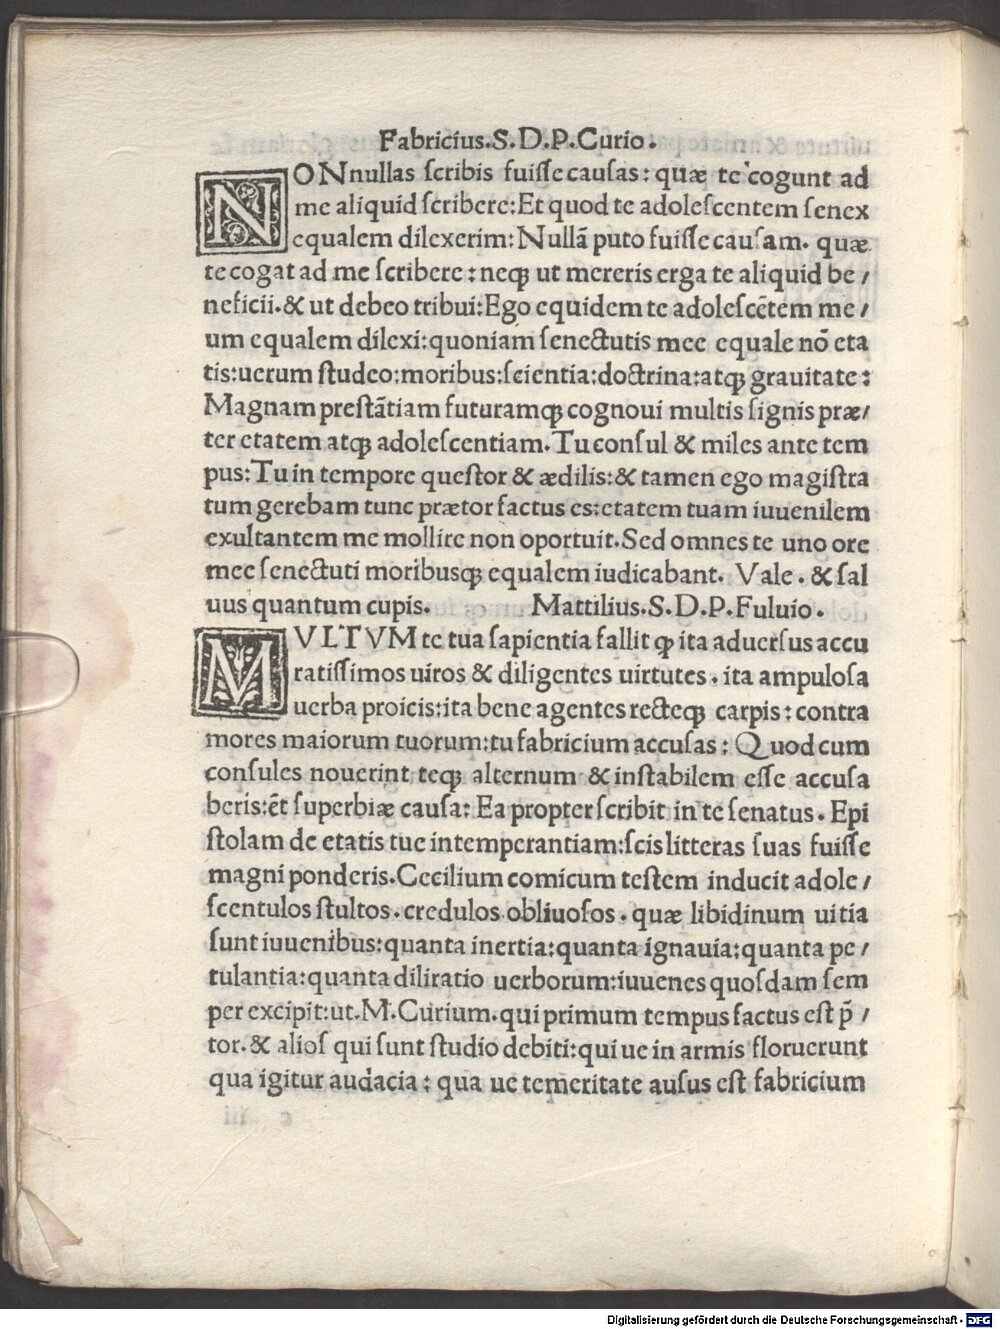 Fabricius.S.D.P.Curio.
NONnullas ſcribis fuiſſe cauſas: quæ te cogunt ad
me aliquid ſcribere:Et quod te adoleſcentem ſenex
equalem dilexerim:Nullã puto fuiſſe cauſam. quæ
te cogat ad me ſcribere: neqꝫ ut mereris erga te aliquid be/
neficii.& ut debeo tribui:Ego equidem te adoleſcẽtem me/
um equalem dilexi:quoniam ſenectutis mee equale nõ eta
tis:uerum ſtudeo:moribus:ſcientia:doctrina:atqꝫ grauitate:
Magnam preſtãtiam futuramqꝫ cognoui multis ſignis præ/
ter etatem atqꝫ adoleſcentiam.Tu conſul & miles ante tem
pus:Tu in tempore queſtor & ædilis:& tamen ego magiſtra
tum gerebam tunc prætor factus es:etatem tuam iuuenilem
exultantem me mollire non oportuit.Sed omnes te uno ore
mee ſenectuti moribusqꝫ equalem iudicabant. Vale. & ſal
uus quantum cupis. Mattilius.S.D.P.Fuluio.
MVLTVM te tua ſapientia fallit ꝙ ita aduerſus accu
ratiſſimos uiros & diligentes uirtutes. ita ampuloſa
uerba proicis:ita bene agentes recteqꝫ carpis: contra
mores maiorum tuorum:tu fabricium accuſas: Quod cum
conſules nouerint teqꝫ alternum & inſtabilem eſſe accuſa
beris:ẽt ſuperbiæ cauſa: Ea propter ſcribit in te ſenatus. Epi
ſtolam de etatis tue intemperantiam:ſcis litteras ſuas fuiſſe
magni ponderis.Cecilium comicum teſtem inducit adole/
ſcentulos ſtultos.credulos obliuoſos. quæ libidinum uitia
ſunt iuuenibus:quanta inertia:quanta ignauia:quanta pe/
tulantia:quanta diliratio uerborum:iuuenes quoſdam ſem
per excipit:ut.M.Curium.qui primum tempus factus eſt p̃/
tor.& alioſ qui ſunt ſtudio debiti:qui ue in armis floruerunt
qua igitur audacia: qua ue temeritate auſus eſt fabricium
Digitalisierung gefördert durch die Deutsche Forschungsgemeinschaft - DFG